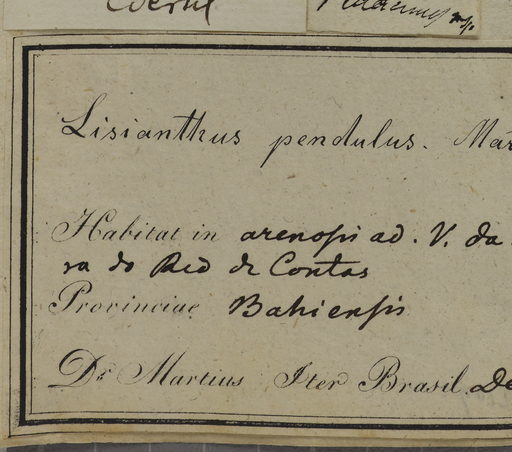 Lisianthus pendulus. Mar
Habitat in arenosis ad. V. da
ra do Rio de Contas
Provinciae Bahiensis
Dr. Martius Iter Brasil. De